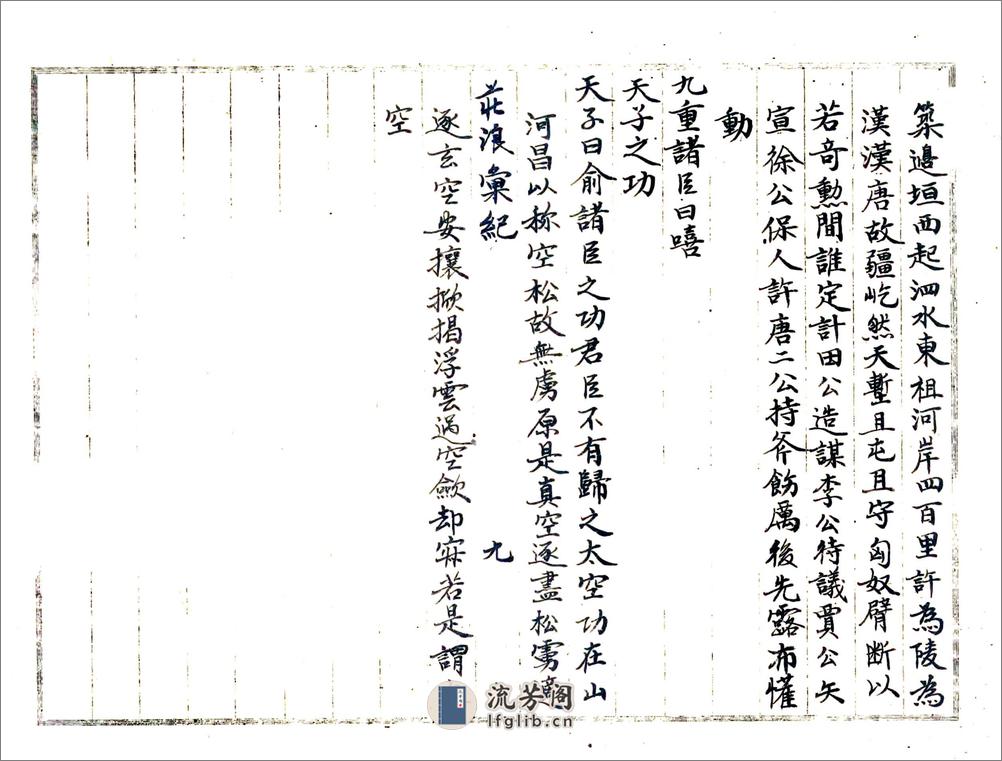 築邊垣西起泗水東祖河岸四百里許為陵為
漢漢唐故疆屹然天塹且屯且守匈奴臂断以
若奇勲間誰定計田公造謀李公待議賈公矢
宣徐公保人許唐二公持斧飭厲後先露布懽
動
九重諸臣曰嘻
天子之功
天子曰俞諸臣之功君臣不有歸之太空功在山
河昌以称空松故無虜原是真空逐盡松雱
莊浪彙紀 九
逐玄空安攘掀揭浮雲過空歛却寐若是謂
空
流芳閣
lfglib.cn